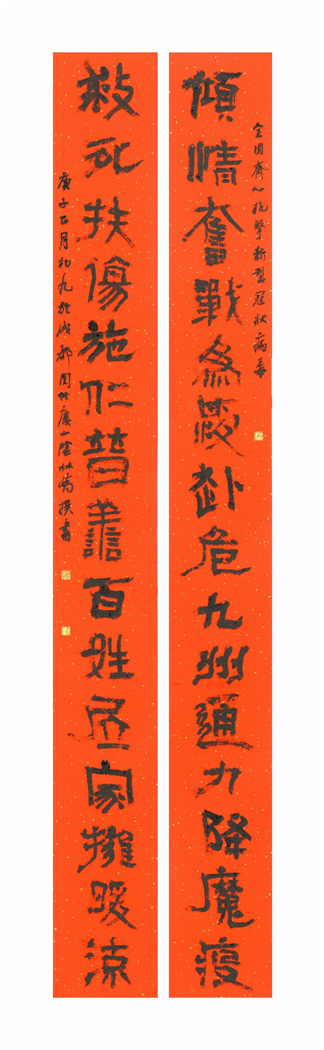 全国齊心抗擊新型冠狀病毒
傾情奮戰為赴危九州通力降魔疫
救死扶傷施仁普譱百姓居家擁暖涼
庚子正月初九於成都竹廬山陰林撰書